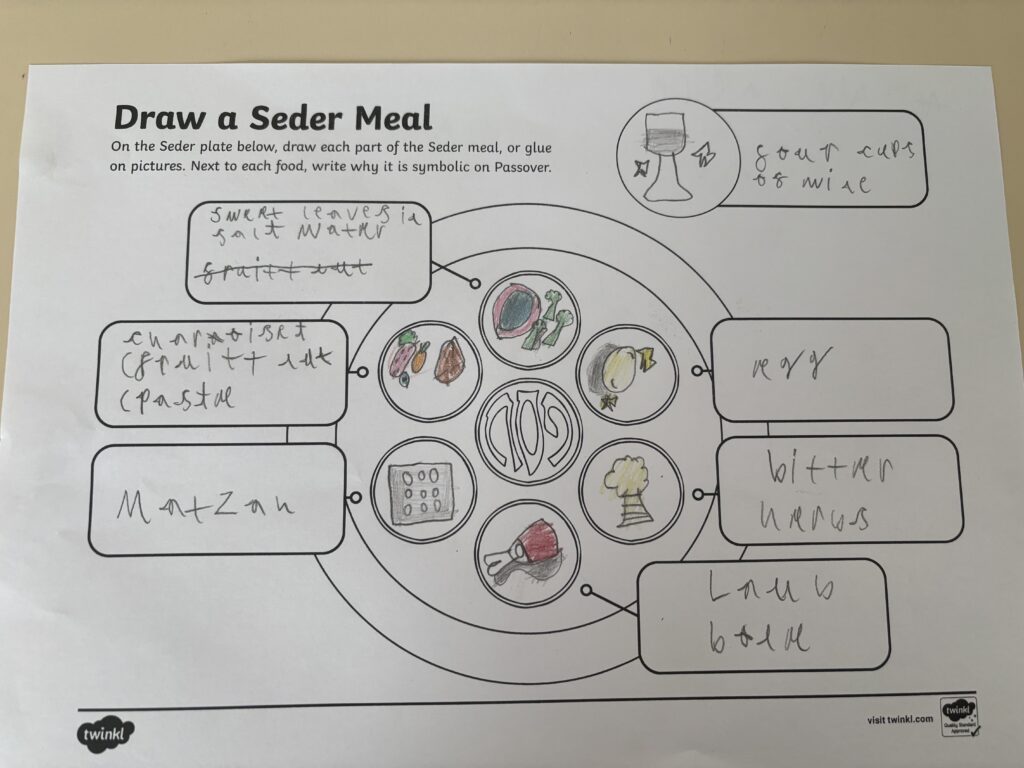 Draw a Seder Meal
On the Seder plate below, draw each part of the Seder meal, or glue
on pictures. Next to each food, write why it is symbolic on Passover.
four cups
of wine
sweet leaves in
salt water
charoiset
(fruitt nut
(paste
Matzah
פסח
egg
bitter
herbs
Lamb
bone
twinkl
visit twinkl.com
twinkl
Quality Standard
Approved